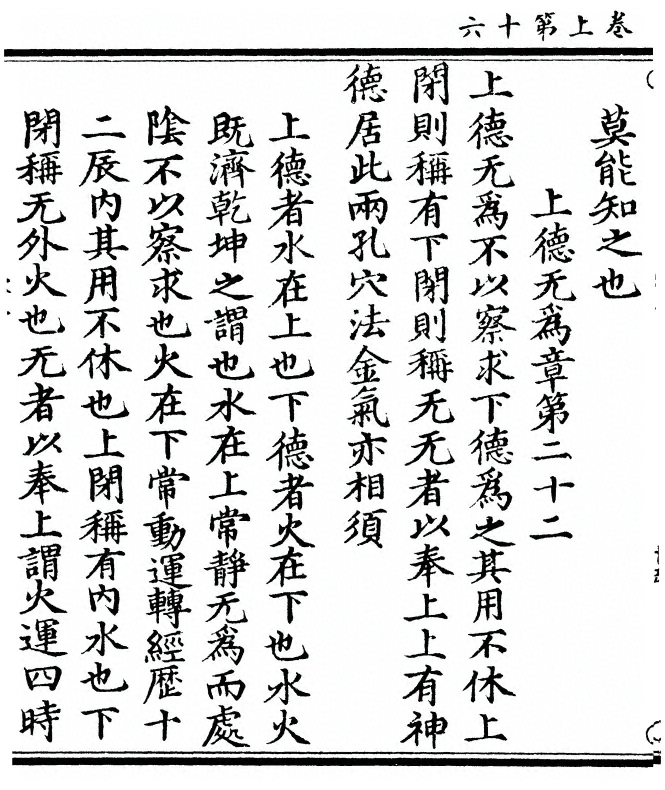 卷上第十六
莫能知之也
上德无爲章第二十二
上德无爲不以察求下德爲之其用不休上
閉則稱有下閉則稱无无者以奉上上有神
德居此兩孔穴法金氣亦相須
上德者水在上也下德者火在下也水火
既濟乾坤之謂也水在上常靜无爲而處
陰不以察求也火在下常動運轉經歴十
二辰内其用不休也上閉稱有内水也下
閉稱无外火也无者以奉上謂火運四時